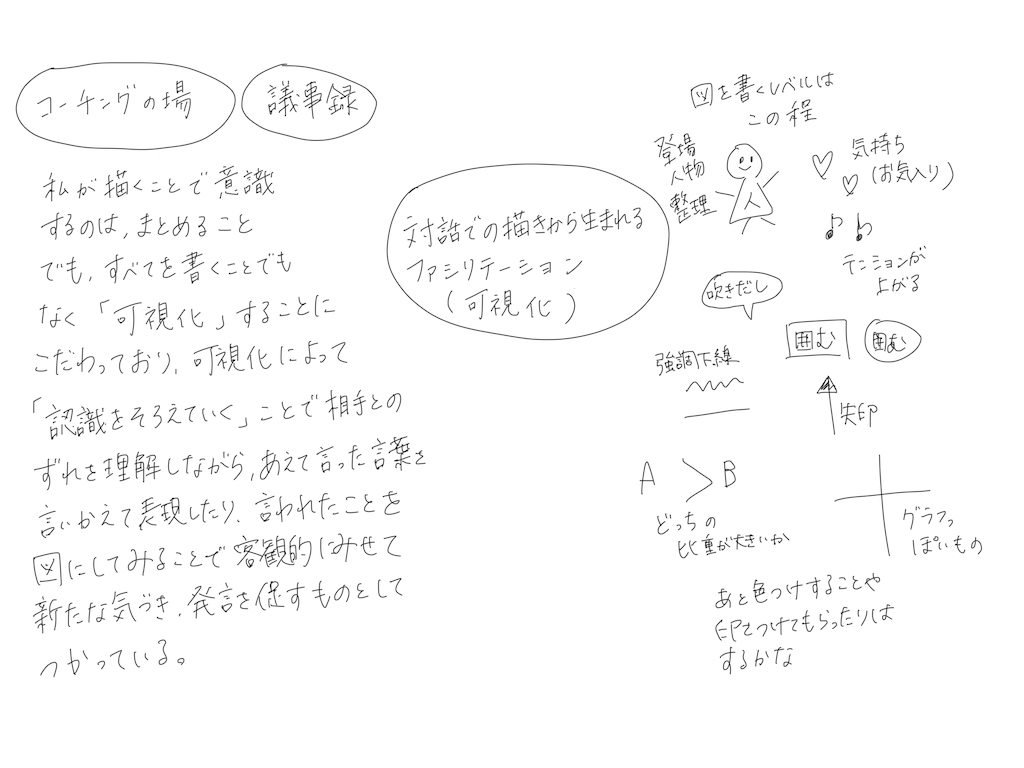 コーチングの場
議事録
私が描くことで意識
するのは、まとめること
でも、すべてを書くことでも
なく「可視化」することに
こだわっており、可視化によって
「認識をそろえていく」ことで相手との
ずれを理解しながら、あえて言った言葉を
言いかえて表現したり、言われたことを
図にしてみることで客観的にみせて
新たな気づき、発言を促すものとして
つかっている。
対話での描きから生まれる
ファシリテーション
(可視化)
図を書くレベルは
この程
登場
人物
整理
人
気持ち
(お気入り)
テンションが
上がる
吹きだし
囲む
囲む
強調下線
矢印
A > B
どっちの
比重が大きいか
グラフっ
ぽいもの
あと色つけすることや
印をつけてもらったりは
するかな